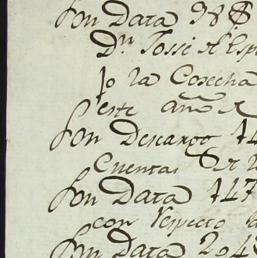 Son Data 988
Dn Josse de Espi
lo la Cosecha
este año d
Son Descargo 14
Cuentas de
Son Data 147
con Respecto a
Son Data 204